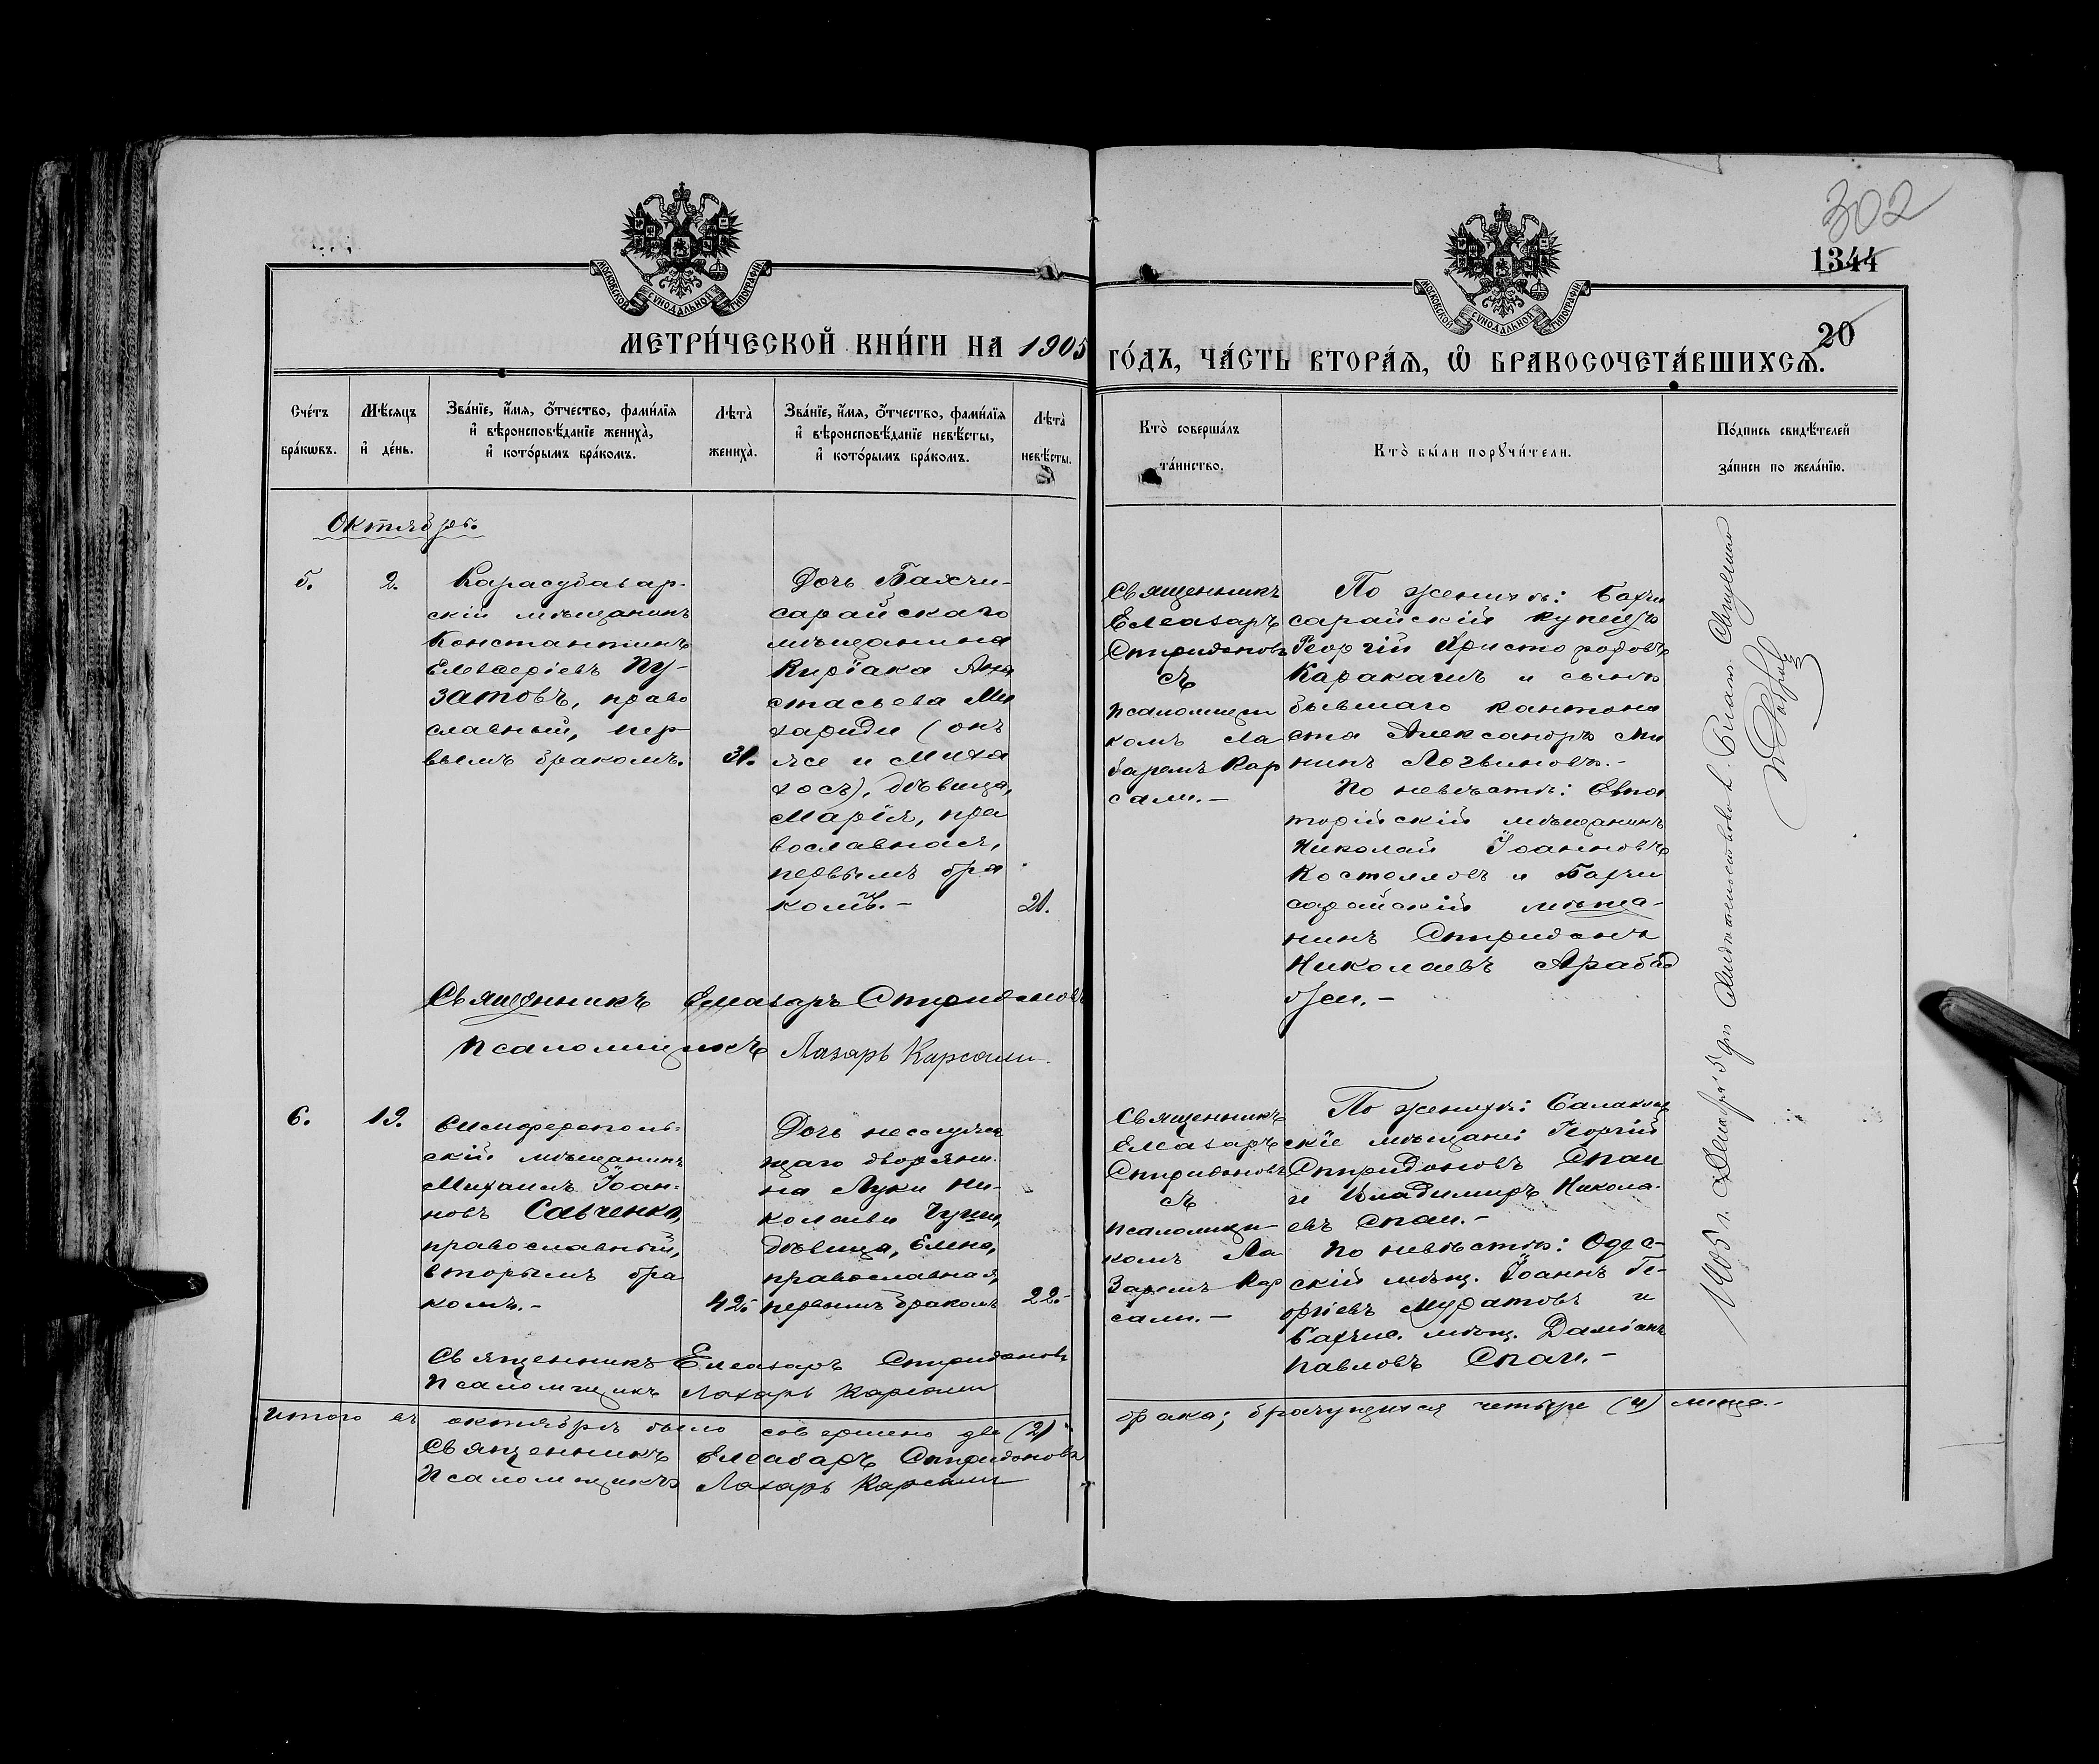 302
1344
20
МОСКОВСКОЙ СѴНОДАЛЬНОЙ ТИПОГРАФІИ
МОСКОВСКОЙ СѴНОДАЛЬНОЙ ТИПОГРАФІИ
МЕТРИ́ЧЕСКОЙ КНИ́ГИ НА 1905 ГО́ДЪ, ЧА́СТЬ ВТОРА́Ѧ, Ѡ҆ БРАКОСОЧЕТА́ВШИХСѦ.
Сче́тъ бра́кѡвъ.
Мѣ́сяцъ и҆ де́нь.
Зва́нїе, и҆́мѧ, ѻ҆́тчество, фами́лїѧ и҆ вѣроисповѣ́данїе жениха̀, и҆ кото́рымъ бра́комъ.
Лѣта̀ жениха̀.
Зва́нїе, и҆́мѧ, ѻ҆́тчество, фами́лїѧ и҆ вѣроисповѣ́данїе невѣ́сты, и҆ кото́рымъ бра́комъ.
Лѣта̀ невѣ́сты.
Кто̀ соверша́лъ та́инство.
Кто̀ бы́ли порꙋчи́тели.
По́дпись свидѣ́телей за́писи по жела́нїю.
Октябрь.
5.
2.
Карасубазар-
скій мѣщанинъ
Константинъ
Елевѳеріевъ Пу-
затовъ, право
славный, пер-
вымъ бракомъ.
31.
Дочь Бахчи-
сарайскаго
мѣщанина
Киріака Ана
стасьева Ми
хариди (онъ
же и Миха
хосъ), дѣвица,
Марія, пра
вославная,
первымъ бра
комъ.-
21.
Священникъ
Елеазаръ
Спиридоновъ
съ
псаломщи
комъ Ла
заремъ Кар
сами.-
По женихѣ: Бахчи
сарайскій купецъ
Георгій Христофоровъ
Каракашъ и сынъ
бывшаго кантони
ста Александръ Ми
нинъ Логвиновъ.-
По невѣстѣ: Евпа
торійскій мѣщанинъ
Николай Іоанновъ
Костелловъ и Бахчи
сарайскій мѣща-
нинъ Спиридонъ
Николаевъ Арабад
бзи.-
Священникъ Елеазаръ Спиридоновъ
Псаломщикъ Лазарь Карсами.
6.
19.
Симферополь-
скій мѣщанинъ
Михаилъ Іоан-
новъ Савченко,
православный,
вторымъ бра
комъ.-
42.-
Дочь неслужа
щаго дворяни-
на Луки Ни-
колаева Чуши,
дѣвица, Елена,
православная,
первымъ бракомъ
22.-
Священникъ
Елеазаръ
Спиридоновъ
съ
псаломщи-
комъ Ла
заремъ Кар
сами.-
По женихѣ: Балаклав
скіе мѣщане: Георгій
Спиридоновъ Спаи
и Владимиръ Никола-
евъ Спаи.-
По невѣстѣ: Одес-
скій мѣщ. Іоаннъ Ге-
оргіевъ Муратовъ и
Бахчис. мѣщ. Даміанъ
Павловъ Спаи.-
Священникъ Елеазаръ Спиридоновъ
Псаломщикъ Лазарь Карсами
Итого въ октябрѣ было совершено два (2) брака; брачущихся четыре (4) лица.-
Священникъ Елеазаръ Спиридоновъ
Псаломщикъ Лазарь Карсами
1905 г. Декабря 5 дня